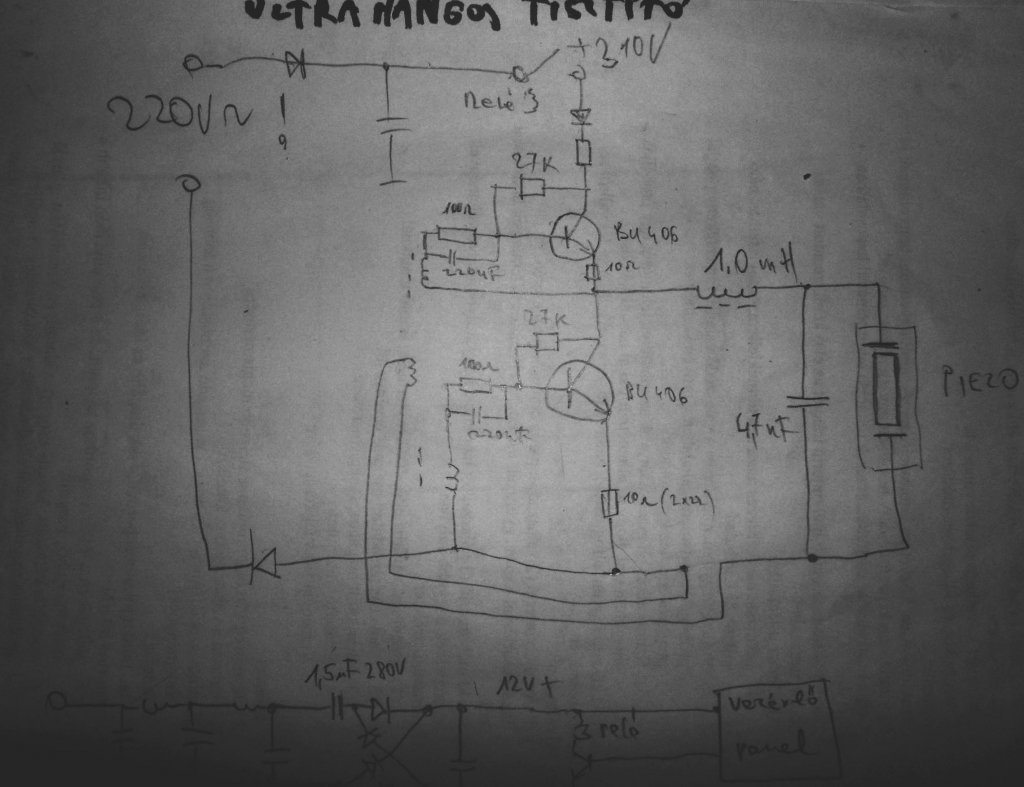 ULTRAHANGOS TISZTÍTÓ
+310V
220V~ !
Relé
27K
100Ω
BU406
220nF
10Ω
1,0 mH
27K
100Ω
BU406
220nF
4,7nF
PIEZO
10Ω (2x22)
1,5µF 280V
12V+
relé
vezérlő
panel